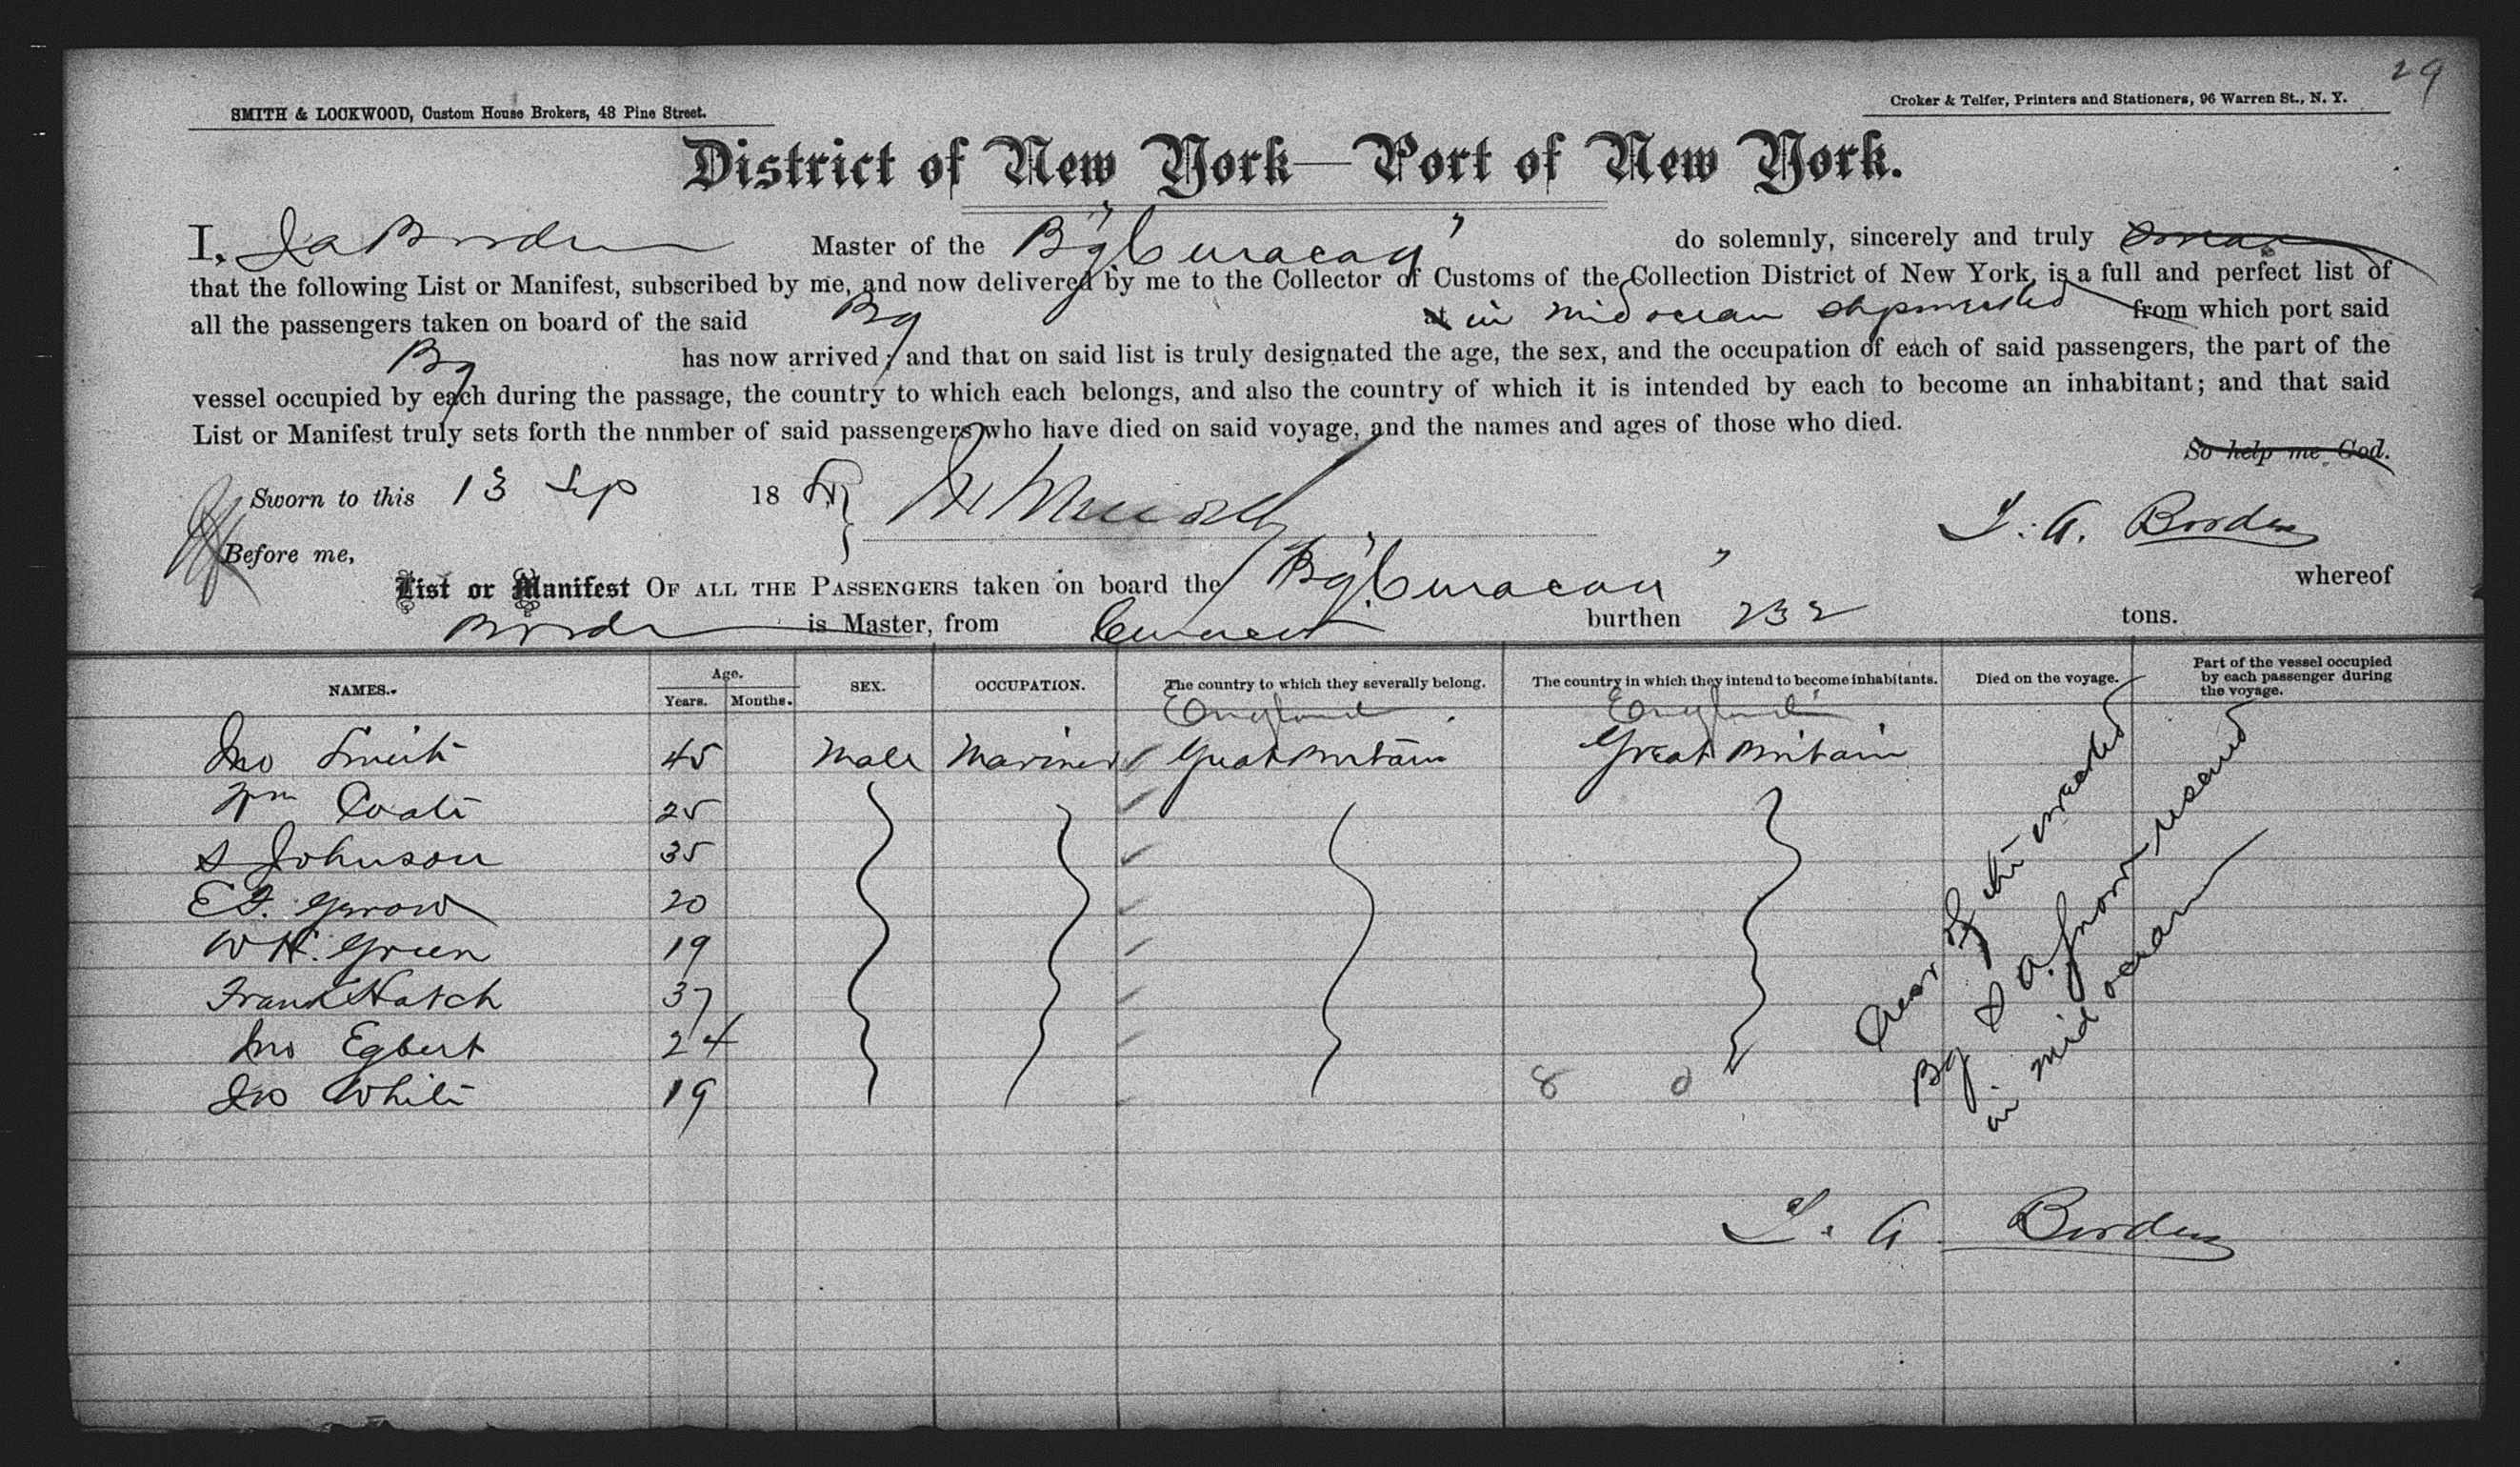 29
SMITH & LOCKWOOD, Custom House Brokers, 48 Pine Street.
Croker & Telfer, Printers and Stationers, 96 Warren St., N. Y.
District of New York—Port of New York.
I, Borden Master of the "Bg Curacao" do solemnly, sincerely and truly
that the following List or Manifest, subscribed by me, and now delivered by me to the Collector of Customs of the Collection District of New York, is a full and perfect list of
all the passengers taken on board of the said Bg at in mid ocean shipwrecked from which port said
Bg has now arrived; and that on said list is truly designated the age, the sex, and the occupation of each of said passengers, the part of the
vessel occupied by each during the passage, the country to which each belongs, and also the country of which it is intended by each to become an inhabitant; and that said
List or Manifest truly sets forth the nnmber of said passengers who have died on said voyage, and the names and ages of those who died.
So help me God.
Sworn to this 13 Sep 18
L. A. Borden
Before me,
List or Manifest OF ALL THE PASSENGERS taken on board the "Bg Curacao" whereof
Borden is Master, from Curacao burthen 232 tons.
NAMES. Age. Years. Months. SEX. OCCUPATION. The country to which they severally belong. The country in which they intend to become inhabitants. Died on the voyage. Part of the vessel occupied by each passenger during the voyage.
England England
Jno Smith 45 Male Mariner Great Britain Great Britain
Wm Coats 25
S Johnson 35
E F. Grrow 20
W H. Green 19
Frank Hatch 37
Jno Egbert 24
Jno White 19
8 0
Crew of the wrecked
Bg S A. Snow rescued
in mid ocean
L. A. Borden